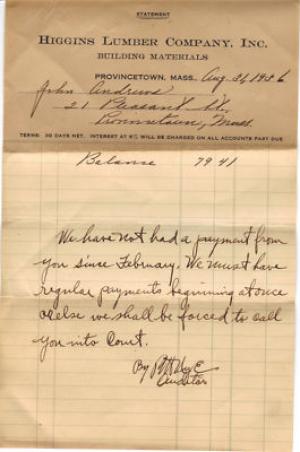 STATEMENT
HIGGINS LUMBER COMPANY, INC.
BUILDING MATERIALS
PROVINCETOWN, MASS., Aug 31, 1936
John Andrews
21 Pleasant St.,
Provincetown, Mass.
TERMS: 30 DAYS NET. INTEREST AT 6% WILL BE CHARGED ON ALL ACCOUNTS PAST DUE
Balance 79 41
We have not had a payment from
you since February. We must have
regular payments beginning at once
or else we shall be forced to call
you into Court.
By
Auditor